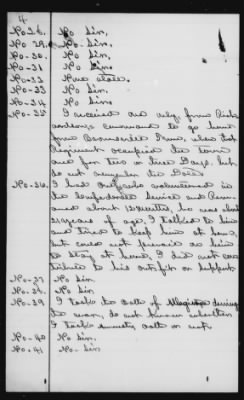 4
No-28. No Sir,
No 29. No Sir,
No-30. No Sir,
No-31 No Sir
No-32 None else.
No-33 No Sir,
No-34 No Sir.
No-35 I received an only from Rich
command to go home
from when that
Regiment occupied the town
one for two or three Days, but
do not remember the Date.
No-36. I had
the Confederate Service and
about 18 months, he was about
21 years of age, I talked to him
and tried to keep him at home,
but could not prevail on him
to stay at home, I did not con
tribute to his outfit or support.
No-37 No Sir
No-38. No Sir.
No-39. I took the oath of during
the war, do not know whether
I took oath or not
No-40 No Sir,
No-41 No-Sir